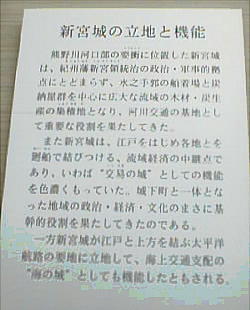 新宮城の立地と機能
熊野川河口部の要衝に位置した新宮城
は、紀州藩新宮領統治の政治・軍事的拠
点にとどまらず、水之手郭の船着場と炭
納屋群を中心に広大な流域の木材・炭生
産の集積地となり、河川交通の基地とし
て重要な役割を果たしてきた。
また新宮城は、江戸をはじめ各地とを
廻船で結びつける、流域経済の中継点で
あり、いわば“交易の城”としての機能
を色濃くもっていた。城下町と一体とな
った地域の政治・経済・文化のまさに基
幹的役割を果たしてきたのである。
一方新宮城が江戸と上方を結ぶ太平洋
航路の要地に立地して、海上交通支配の
“海の城”としても機能したともされる。